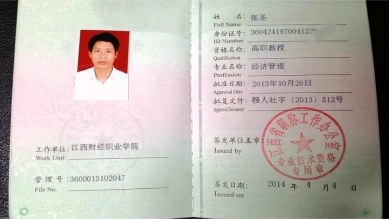 工作单位:江西财经职业学院
Work Unit
管理号:3600013102047
File No.
姓 名:张圣
Full Name
身份证号:
ID Number
资格名称:高职教授
Qualification
专业名称:经济管理
Profession
批准日期:2013年10月26日
Approval Date
批复文号:赣人社字〔2013〕512号
Approval Document
签发单位盖章:
Issued by
江西省职称工作办公室
专业技术资格
专用章
签发日期:2014年4月4日
Issued on